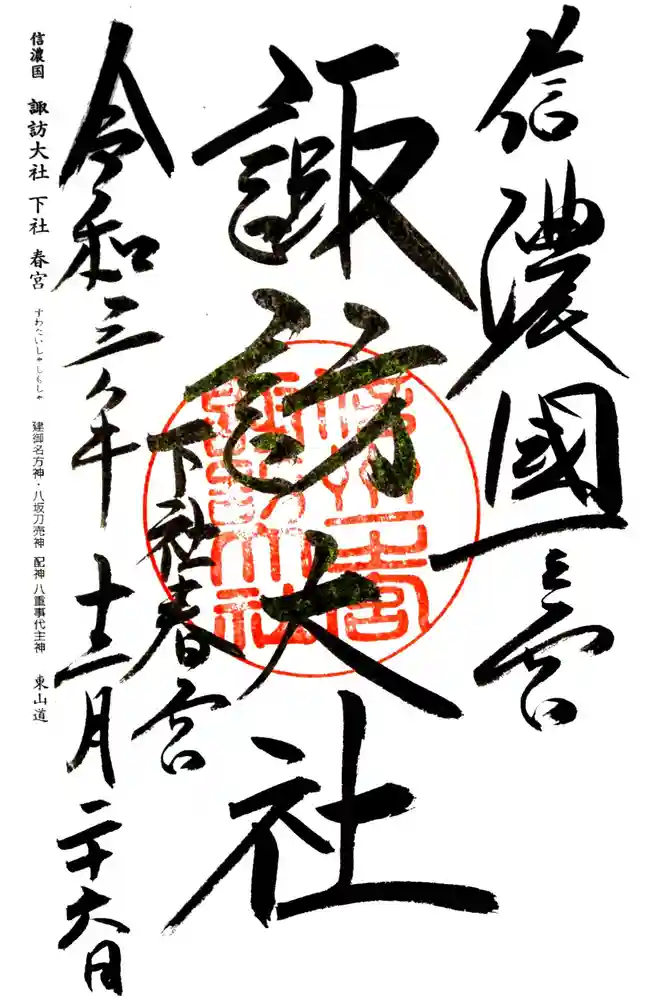 信濃國一之宮
諏訪大社
下社春宮
令和三年十二月二十六日
信濃国 諏訪大社 下社 春宮 すわたいしゃしもしゃ 建御名方神・八坂刀売神 配神 八重事代主神 東山道